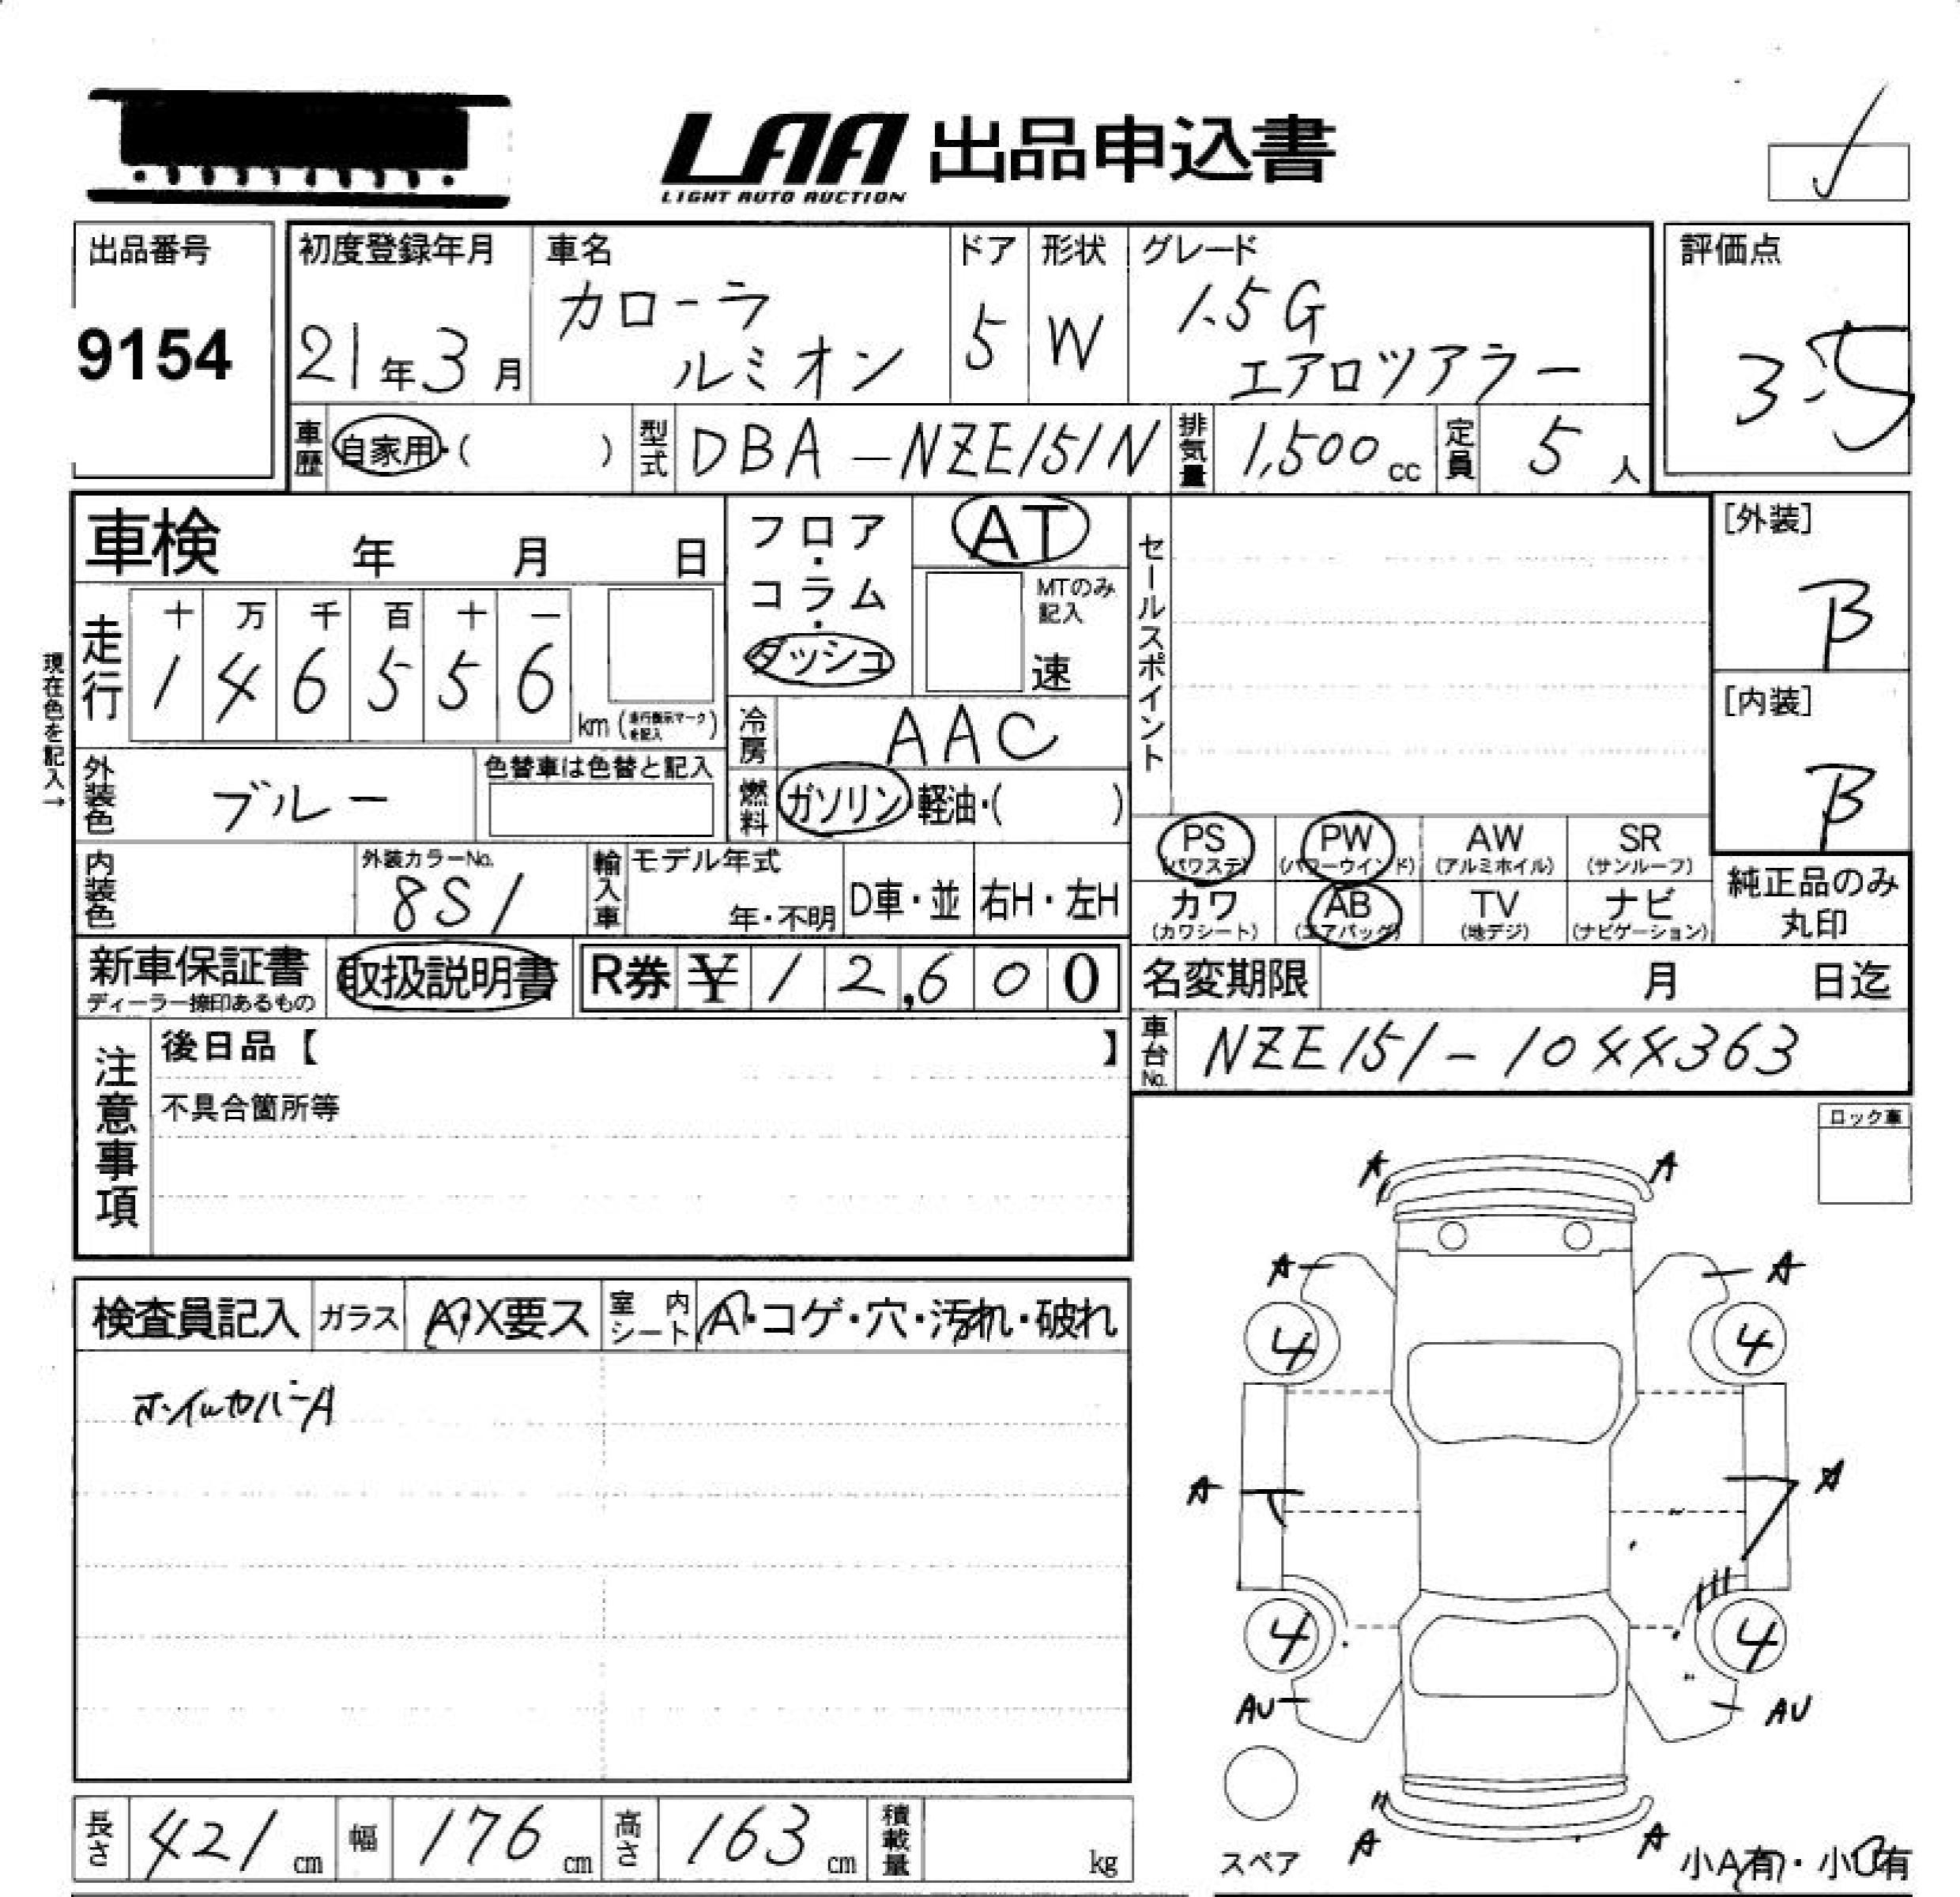 LAA 出品申込書
LIGHT AUTO AUCTION
出品番号
9154
初度登録年月
21年3月
車名
カローラ
ルミオン
ドア
5
形状
W
グレード
1.5G
エアロツアラー
評価点
3.5
車歴 自家用・( )
型式 DBA-NZE151N
排気量 1,500cc
定員 5人
車検 年 月 日
フロア・コラム・ダッシュ
AT
MTのみ記入
速
セールスポイント
[外装]
B
[内装]
B
現在色を記入→
走行
十 万 千 百 十 一
1 4 6 5 5 6
km (走行表示マークを記入)
冷房 AAC
外装色 ブルー
色替車は色替と記入
燃料 ガソリン・軽油・( )
PS (パワステ) PW (パワーウインド) AW (アルミホイル) SR (サンルーフ)
カワ (カワシート) AB (エアバッグ) TV (地デジ) ナビ (ナビゲーション)
純正品のみ
丸印
内装色
外装カラーNo.
8S1
輸入車
モデル年式
年・不明
D車・並
右H・左H
新車保証書
ディーラー捺印あるもの
取扱説明書
R券 ¥12,600
名変期限 月 日迄
車台No. NZE151-1044363
注意事項
後日品【 】
不具合箇所等
ロック車
A A
A A
4 4
A A
4 4
AU AU
A A
検査員記入
ガラス A・X要ス
室内シート A・コゲ・穴・汚れ・破れ
ホイルカバーA
長さ 421cm
幅 176cm
高さ 163cm
積載量 kg
スペア
小A有・小U有